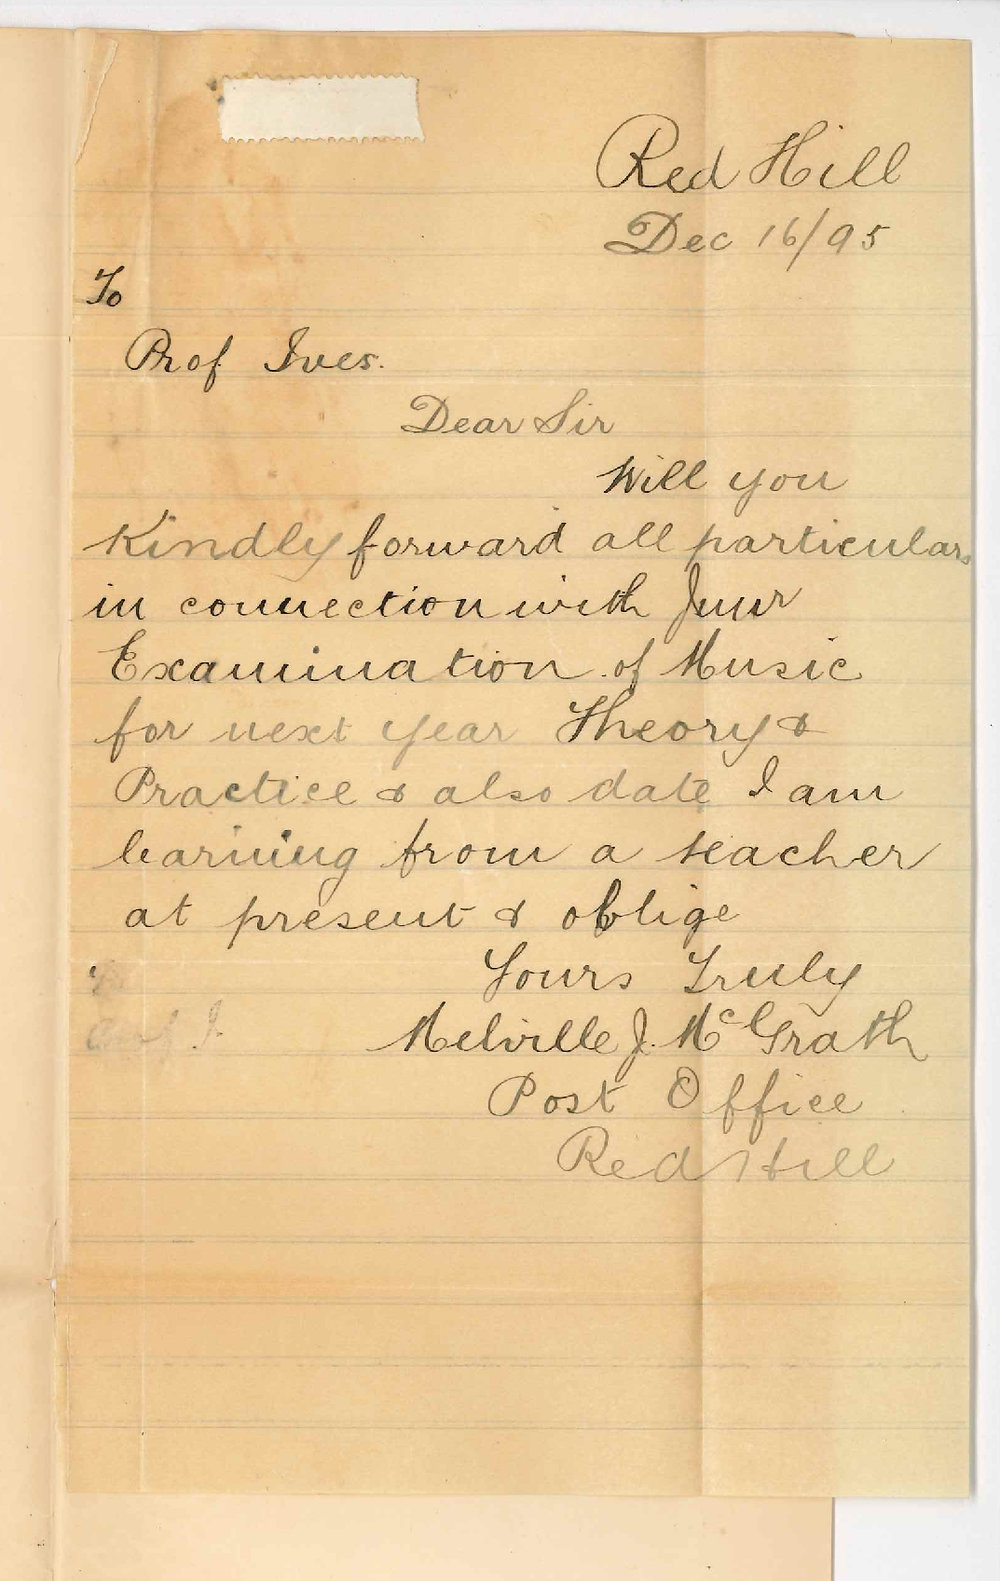 Red Hill
Dec 16/95
To
Prof Ives.
Dear Sir
Will you
Kindly forward all particulars
in connection with Junr
Examination of Music
for next year Theory &
Practice & also date I am
learning from a teacher
at present & oblige
Yours Truly
Melville J. McGrath
Post Office
Red Hill
To
Prof I.